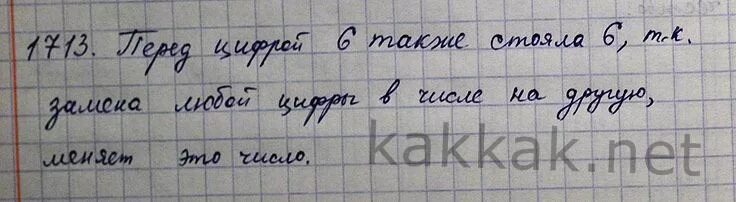 1713. Перед цифрой 6 также стояла 6, т.к.
замена любой цифры в числе на другую,
меняет это число.
kakkak.net